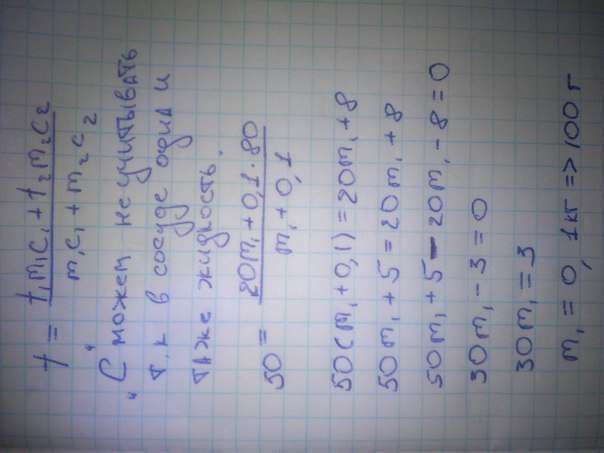 t = (t₁m₁c₁ + t₂m₂c₂) / (m₁c₁ + m₂c₂)
"C" можем не учитывать
т.к в сосуде одна и
таже жидкость.
50 = (20m₁ + 0,1·80) / (m₁ + 0,1)
50(m₁ + 0,1) = 20m₁ + 8
50m₁ + 5 = 20m₁ + 8
50m₁ + 5 - 20m₁ - 8 = 0
30m₁ - 3 = 0
30m₁ = 3
m₁ = 0,1кг => 100 г